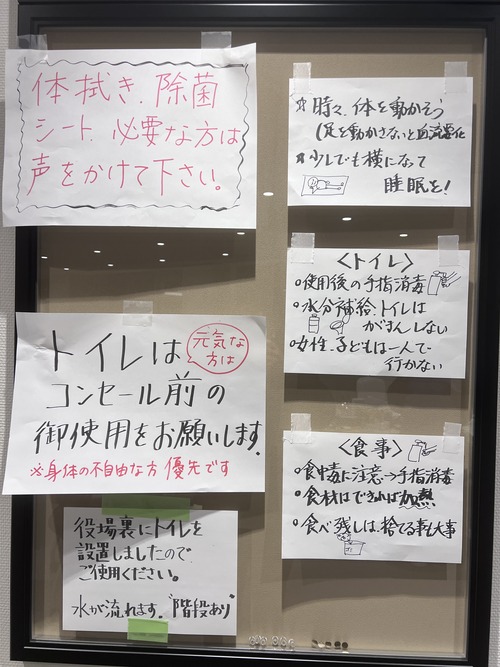 体拭き、除菌
シート、必要な方は
声をかけて下さい。
トイレは
元気な
方は
コンセール前の
御使用をお願いします。
※身体の不自由な方 優先です
役場裏にトイレを
設置しましたので
ご使用ください。
水が流れます。"階段あり"
☆時々、体を動かそう
(足を動かさないと血流悪化
☆少しでも横になって
睡眠を!
<トイレ>
○使用後の手指消毒
○水分補給、トイレは
がまんしない
○女性、子どもは一人で
行かない
<食事>
○食中毒に注意→手指消毒
○食材はできれば加熱
○食べ残しは捨てる事も大事